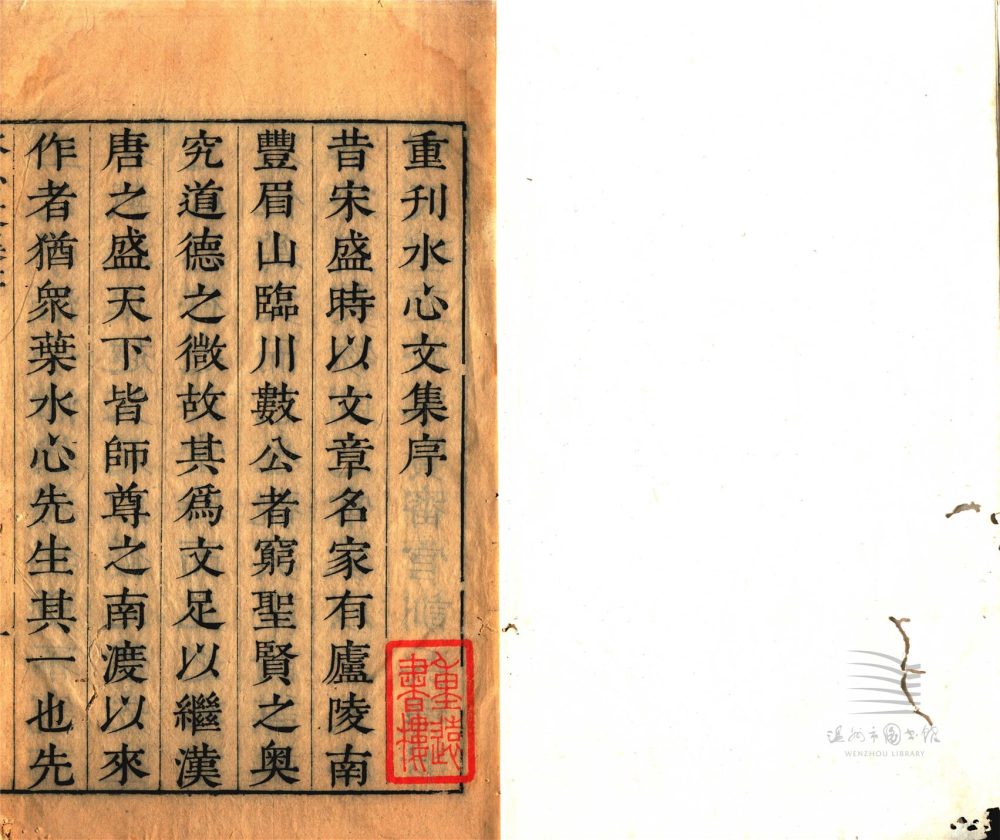 重刊水心文集序
昔宋盛時以文章名家有廬陵南
豐眉山臨川數公者窮聖賢之奧
究道德之微故其爲文足以繼漢
唐之盛天下皆師尊之南渡以來
作者猶衆葉水心先生其一也先
書樓
温州市图书馆
WENZHOU LIBRARY